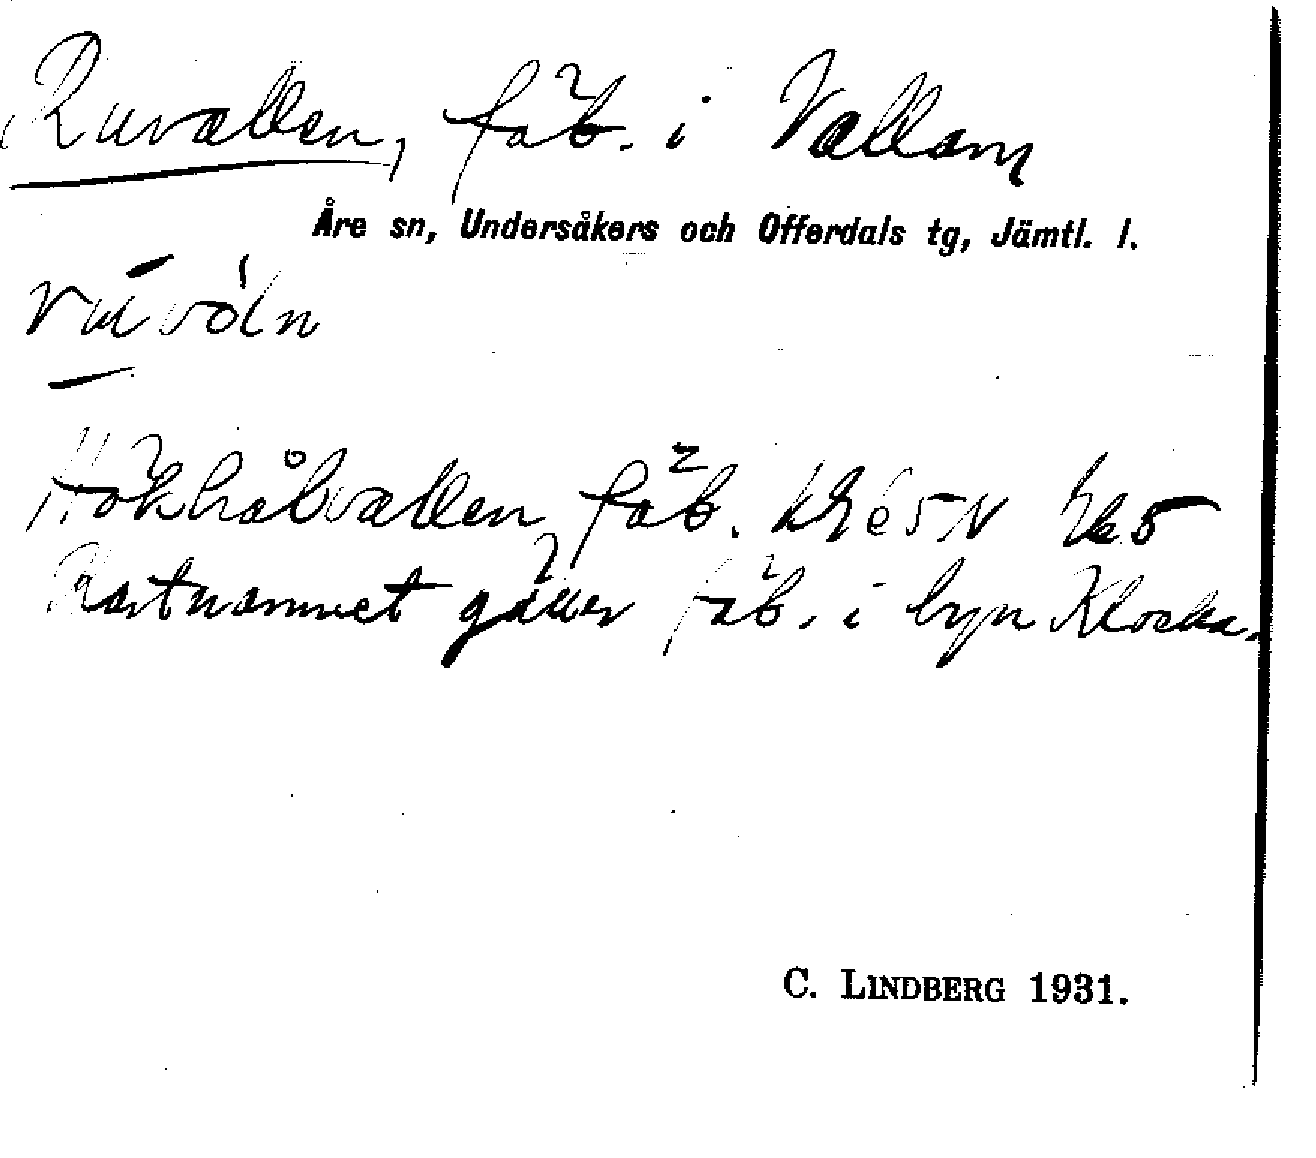 Ruvallen, fäb. i Vallam
Åre sn, Undersåkers och Offerdals tg, Jämtl. l.
Hökhålvallen, fäb. 65 N
Kartnamnet gäller fäb. i byn Klocka.
C. LINDBERG 1931.